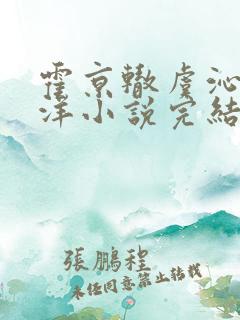 霍京辙虞沁
洋小說完結
張鵬程
未经同意禁止转载